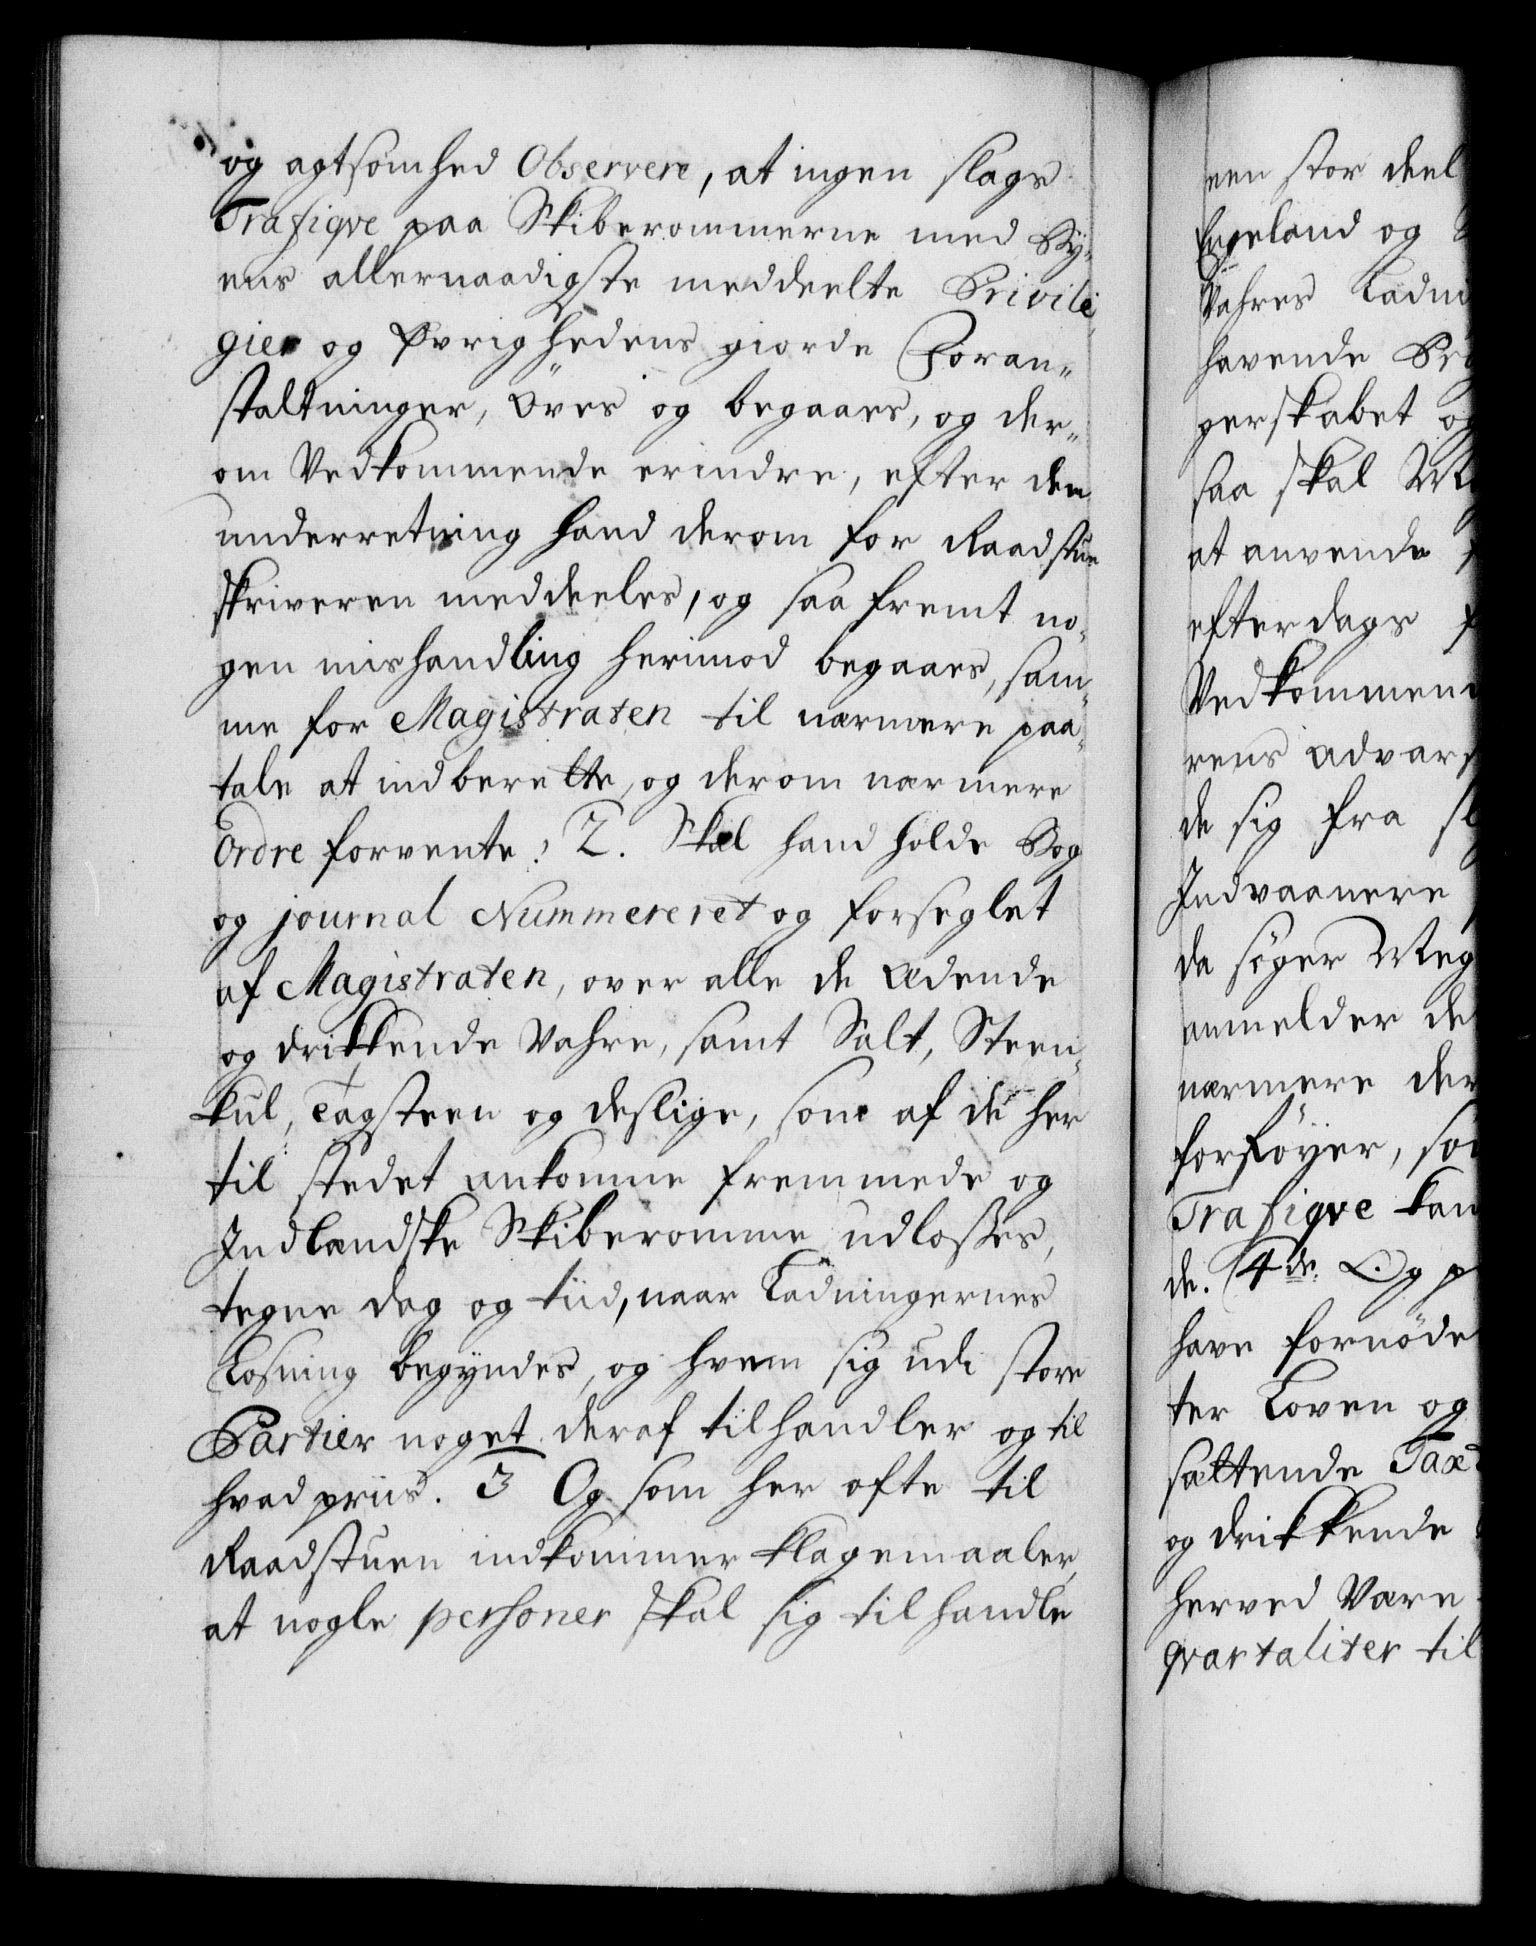 og agtsomhed Observere, at ingen slags
Trafiqve paa Skiberommerne med By,,
ens allernaadigste meddeelte Privile,,
gier og Øvrighedens giorde Foran,,
staltninger, öves og begaaes, og der,,
om Vedkommende erindre, efter den
underretning hand derom for Raadstue
skriveren meddeeles, og saa fremt no,,
gen mishandling herimod begaaes, sam,,
me for Magistraten til nærmere paa,,
tale at indberette, og derom nærmere
Ordre forvente: 2. Skal hand holde Bog
og journal Nummereret og forseglet
af Magistraten, over alle de ædende
og drikkende Vahre, samt Salt, Steen,,
kul, Tagsteen og deslige, som af de her
til stedet ankomne fremmede og
Indlandske Skiberomme udlosses,
tegne dag og tiid, naar Ladningernes
Losning begyndes, og hvem sig udi store
Partier noget deraf tilhandler og til
hvad priis. 3 Og som her ofte til
Raadstuen indkommer klagemaaler,
at nogle personer skal sig tilhandle
een stor deel
Engeland og
Vahres Ladni
havende Pri
gerskabet og
saa skal
at anvende
efterdags
Vedkommen
rens advars
de sig fra
Indvaanere
da søger
anmelder de
nærmere der
forføyer,
Trafiqve kan
de. 4de Og p
have fornøde
ter Loven og
sættende Tax
og drikkende
herved være
qvartaliter til